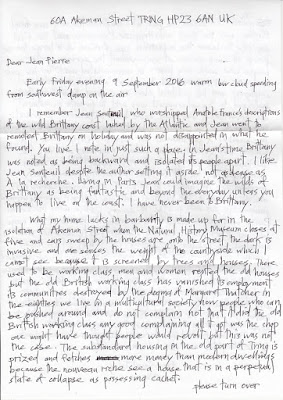 60A Akeman Street TRING HP23 6AN UK
Dear Jean Pierre
Early Friday evening 9 September 2016 warm but cloud spreading
from southwest damp on the air
I remember Jean who worshipped Anatole France's descriptions
of the wild Brittany coast lashed by the Atlantic and Jean went to
remotest Brittany on holiday and was not disappointed in what he
found. You live I note in just such a place. In Jean's time Brittany
was noted as being backward and isolated its people apart. I like
Jean despite the author setting it aside not as dense as
A la recherche. Living in Paris Jean could imagine the wilds of
Brittany as being fantastic and beyond the everyday unless you
happen to live on the coast. I have never been to Brittany.
What my home lacks in barbarity is made up for in the
isolation of Akeman Street when the Natural History Museum closes at
five and cars sweep by the houses are onto the street the dark is
invasive and one senses the weight of the countryside which I
cannot see because it is screened by trees and houses. There
used to be working class men and women rented the old houses
but the old British working class has vanished its employment
its communities destroyed by the doings of Margaret Thatcher in
the eighties we live in a multicultural society now people who can
be pushed around and do not complain not that it did the old
British working class any good complaining all it got was the chop
one might have thought people would revolt but this was not
the case. The substandard housing in the old part of Tring is
prized and fetches more money than modern dwellings
because the nouveau riche see a house that is in a perpetual
state of collapse as possessing cachet.
please turn over